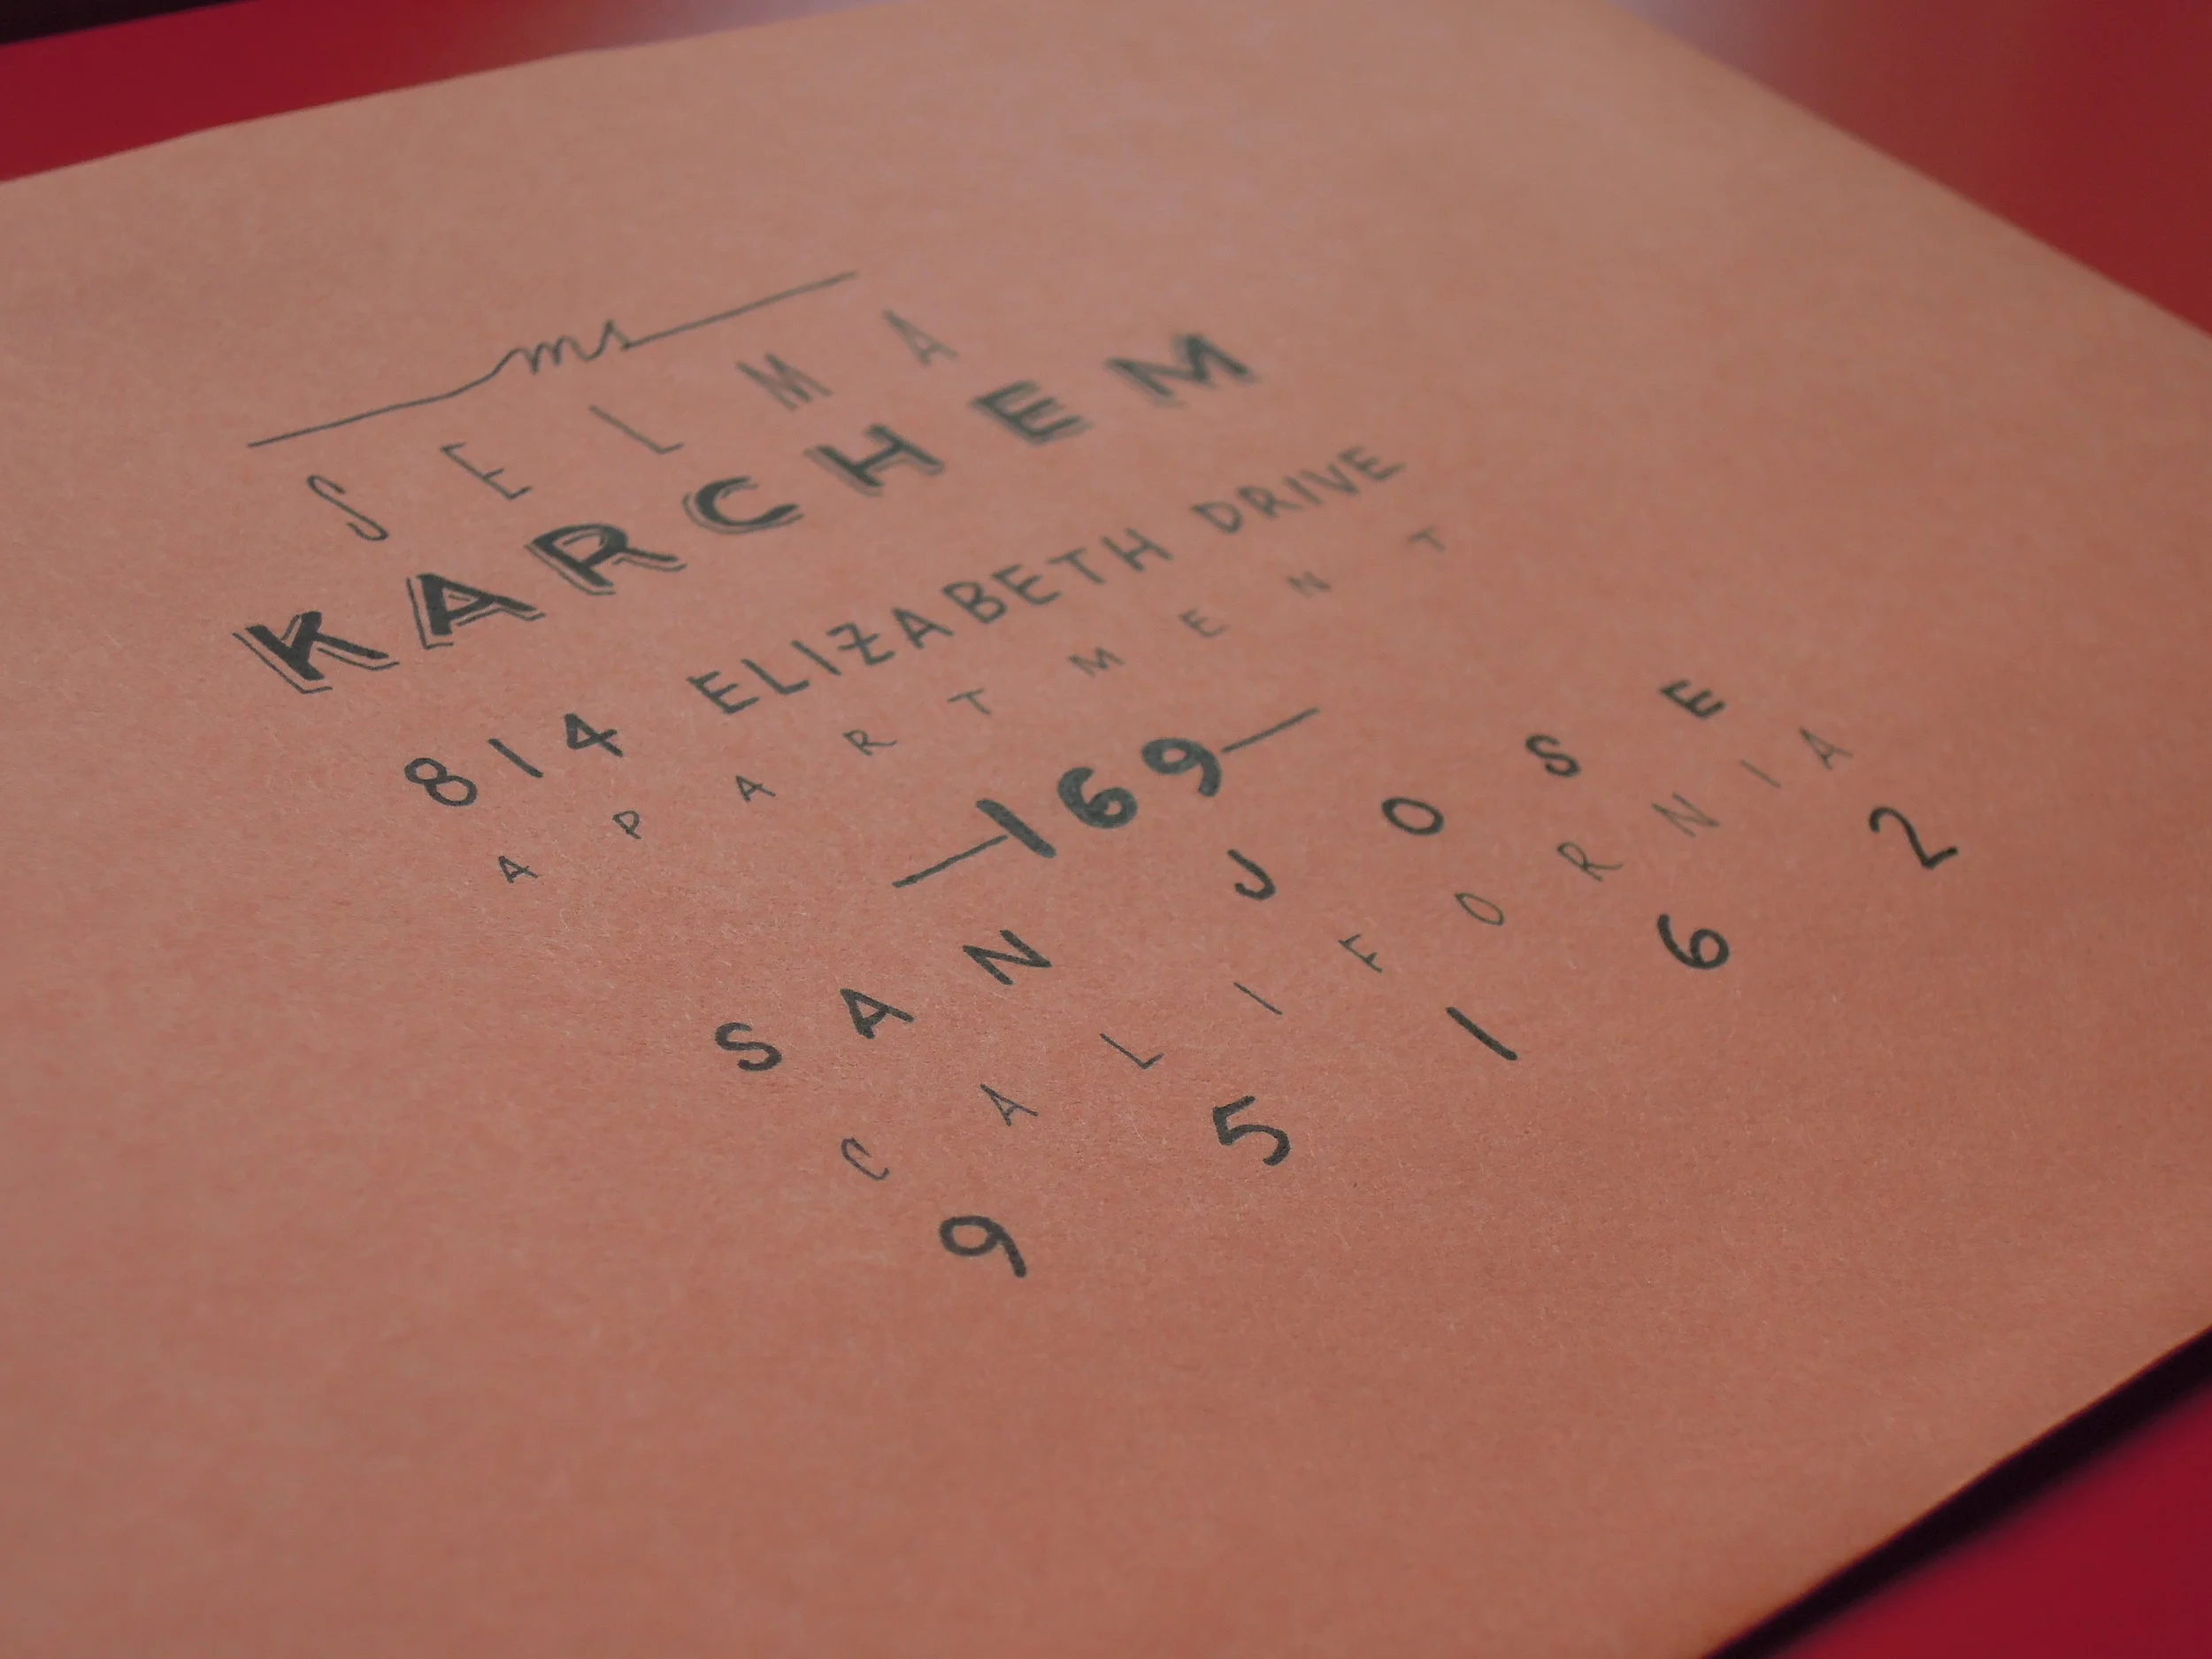 ms
SELMA
KARCHEM
814 ELIZABETH DRIVE
APARTMENT
—169—
SAN JOSE
CALIFORNIA
95162